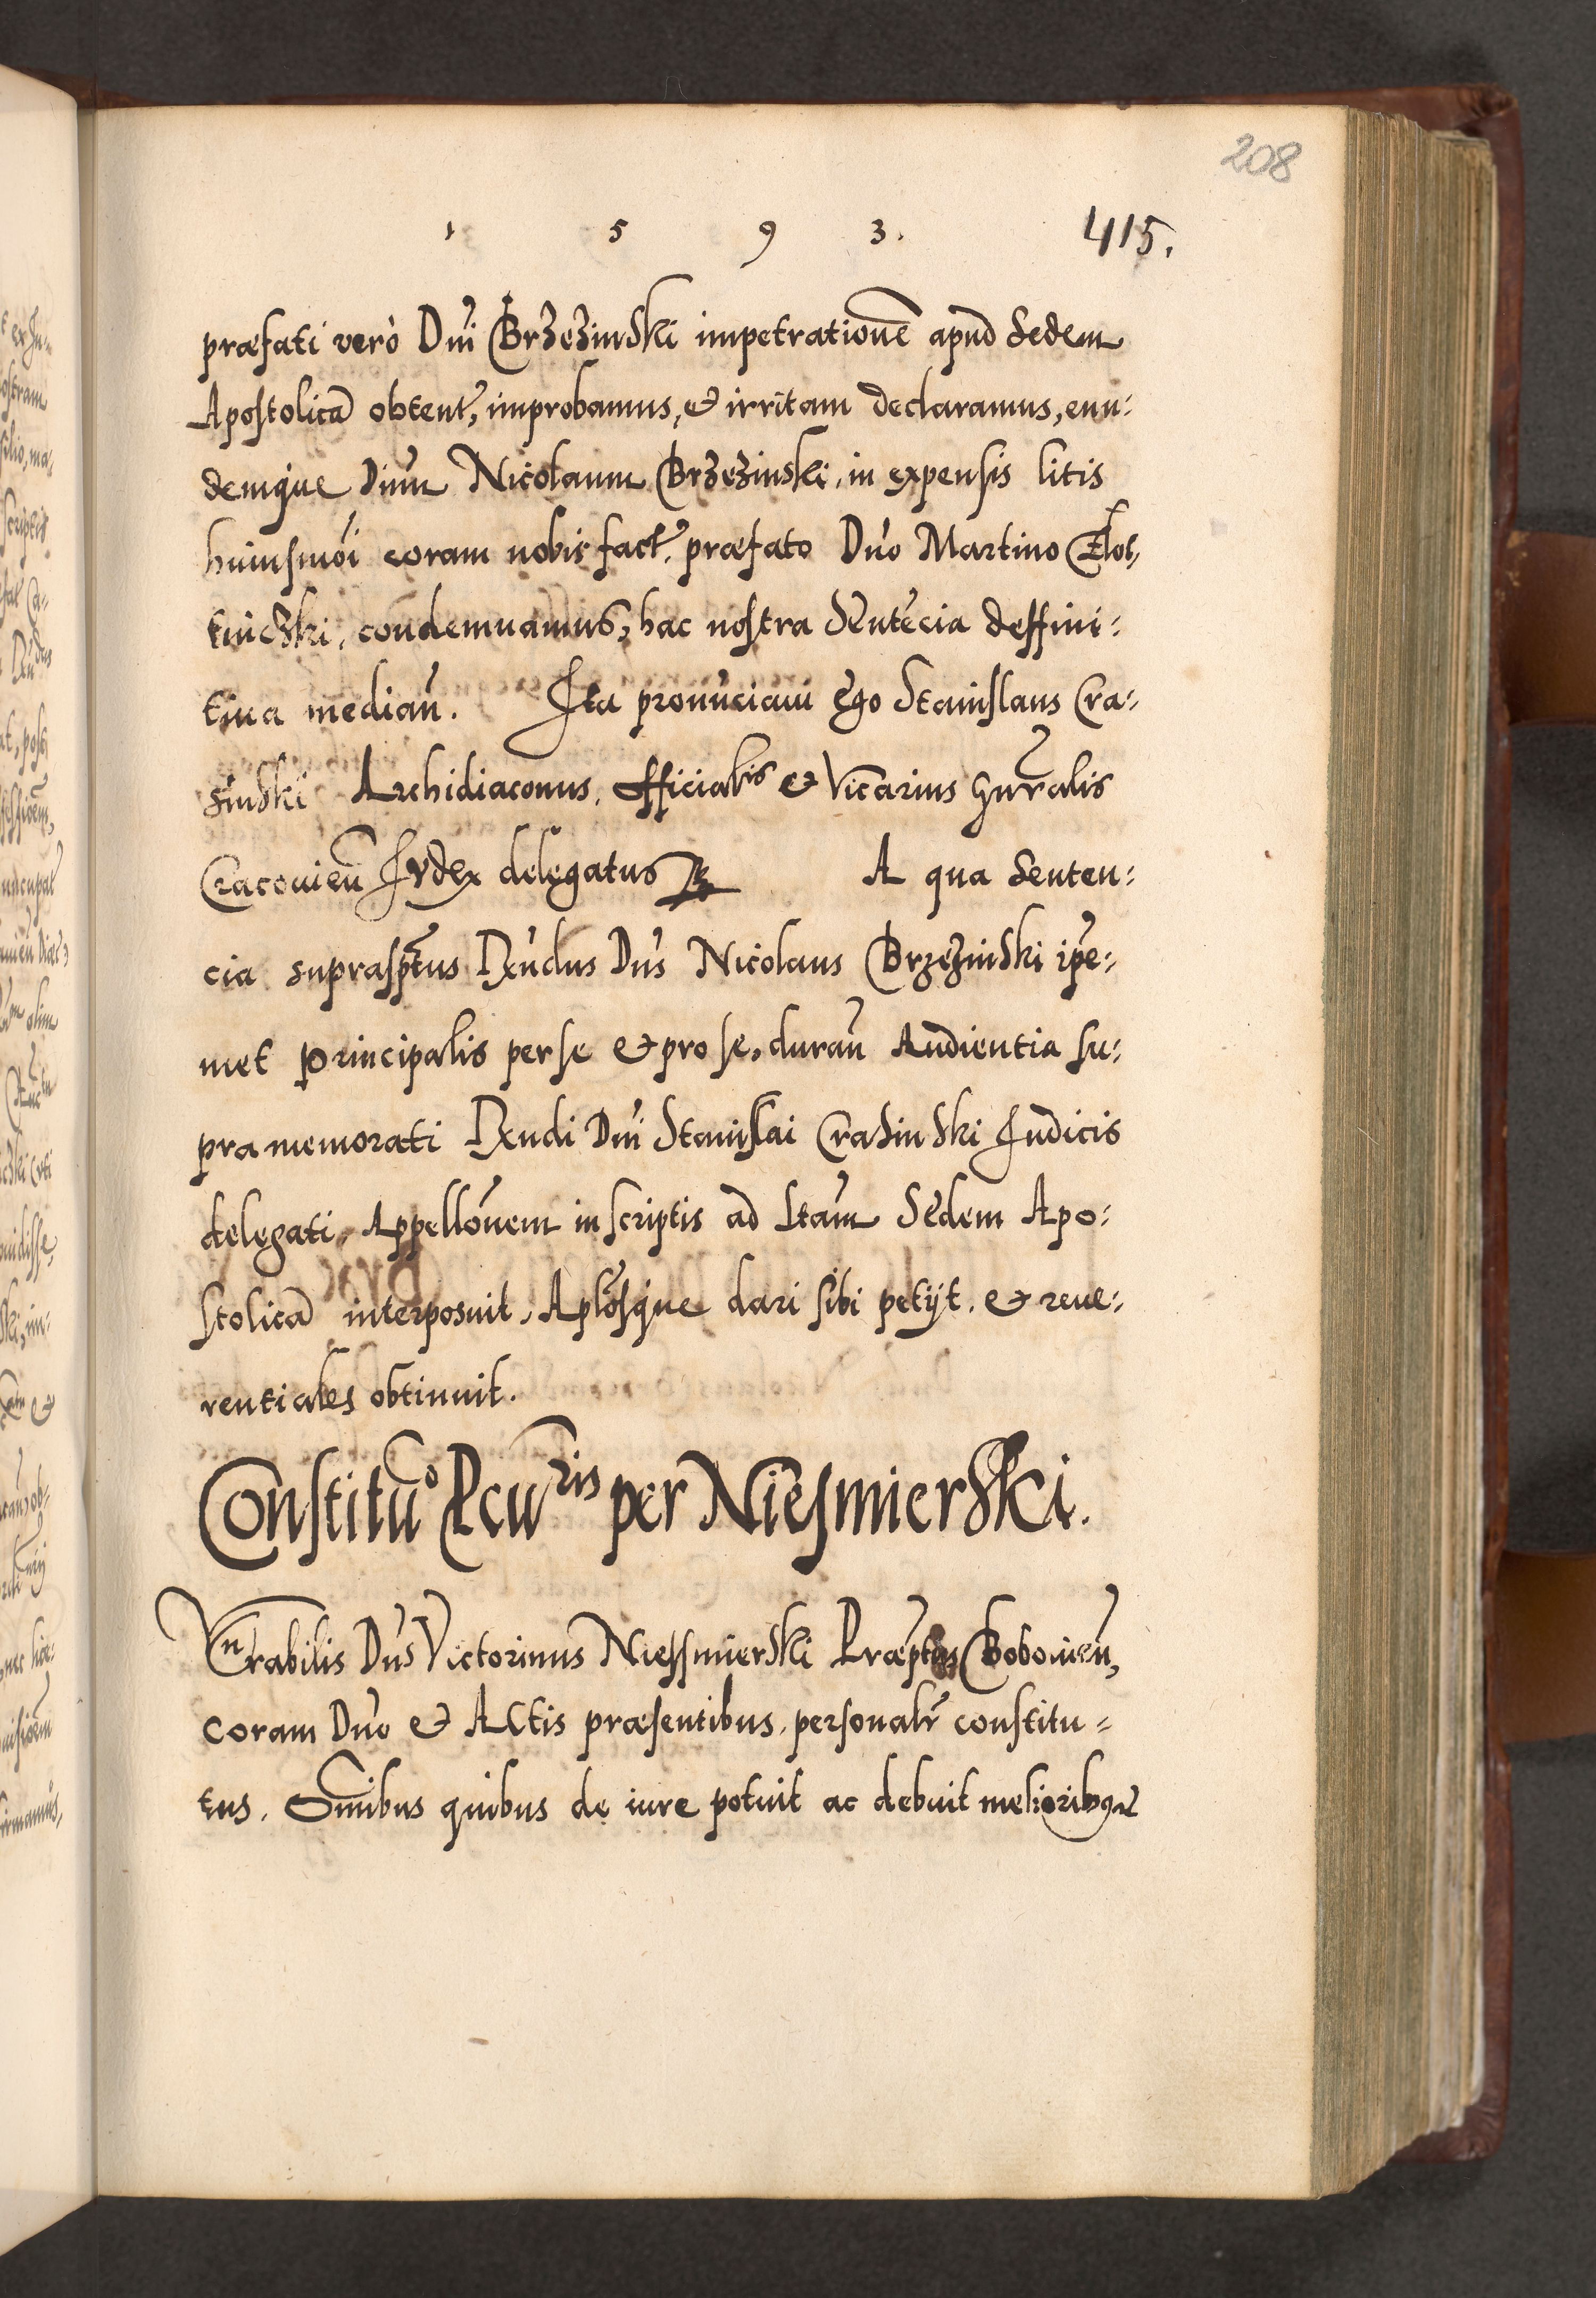 208
1 5 9 3. 415.
præfati verò Dni Brzezinski impetrationē apud Sedem
Apostolicā obtent, improbamus, et irritam declaramus, eun:
demque Dnum Nicolaum Brzezinski, in expensis litis
huiusmōi coram nobis fact. præfato Dno Martino Złot,
nickski, condemnamus, hac nostra Sentēcia deffini:
tiua median̄. Ita pronūciaui Ego Stanislaus Cra:
sinski Archidiaconus, Officialis et Vicarius Gnralis
Cracouien̄ Iudex delegatus A qua Senten:
cia suprasptus Rndus Dns Nicolaus Brzezinski ipe:
met principalis per se et pro se, duran̄ Audientia su:
pra memorati Rndi Dni Stanislai Crasinski Iudicis
delegati, Appellōnem in scriptis ad Stam Sedem Apo:
stolicā interposuit, Aplosque dari sibi petijt, et reue:
rentiales obtinuit.
Constitūo Pcuris per Niesmierski.
Vnrabilis Dns Victorinus Niessmierski Præptus Bobouien̄,
coram Dno et Actis præsentibus, personalr constitu:
tus. Omibus quibus de iure potuit ac debuit melioribusq